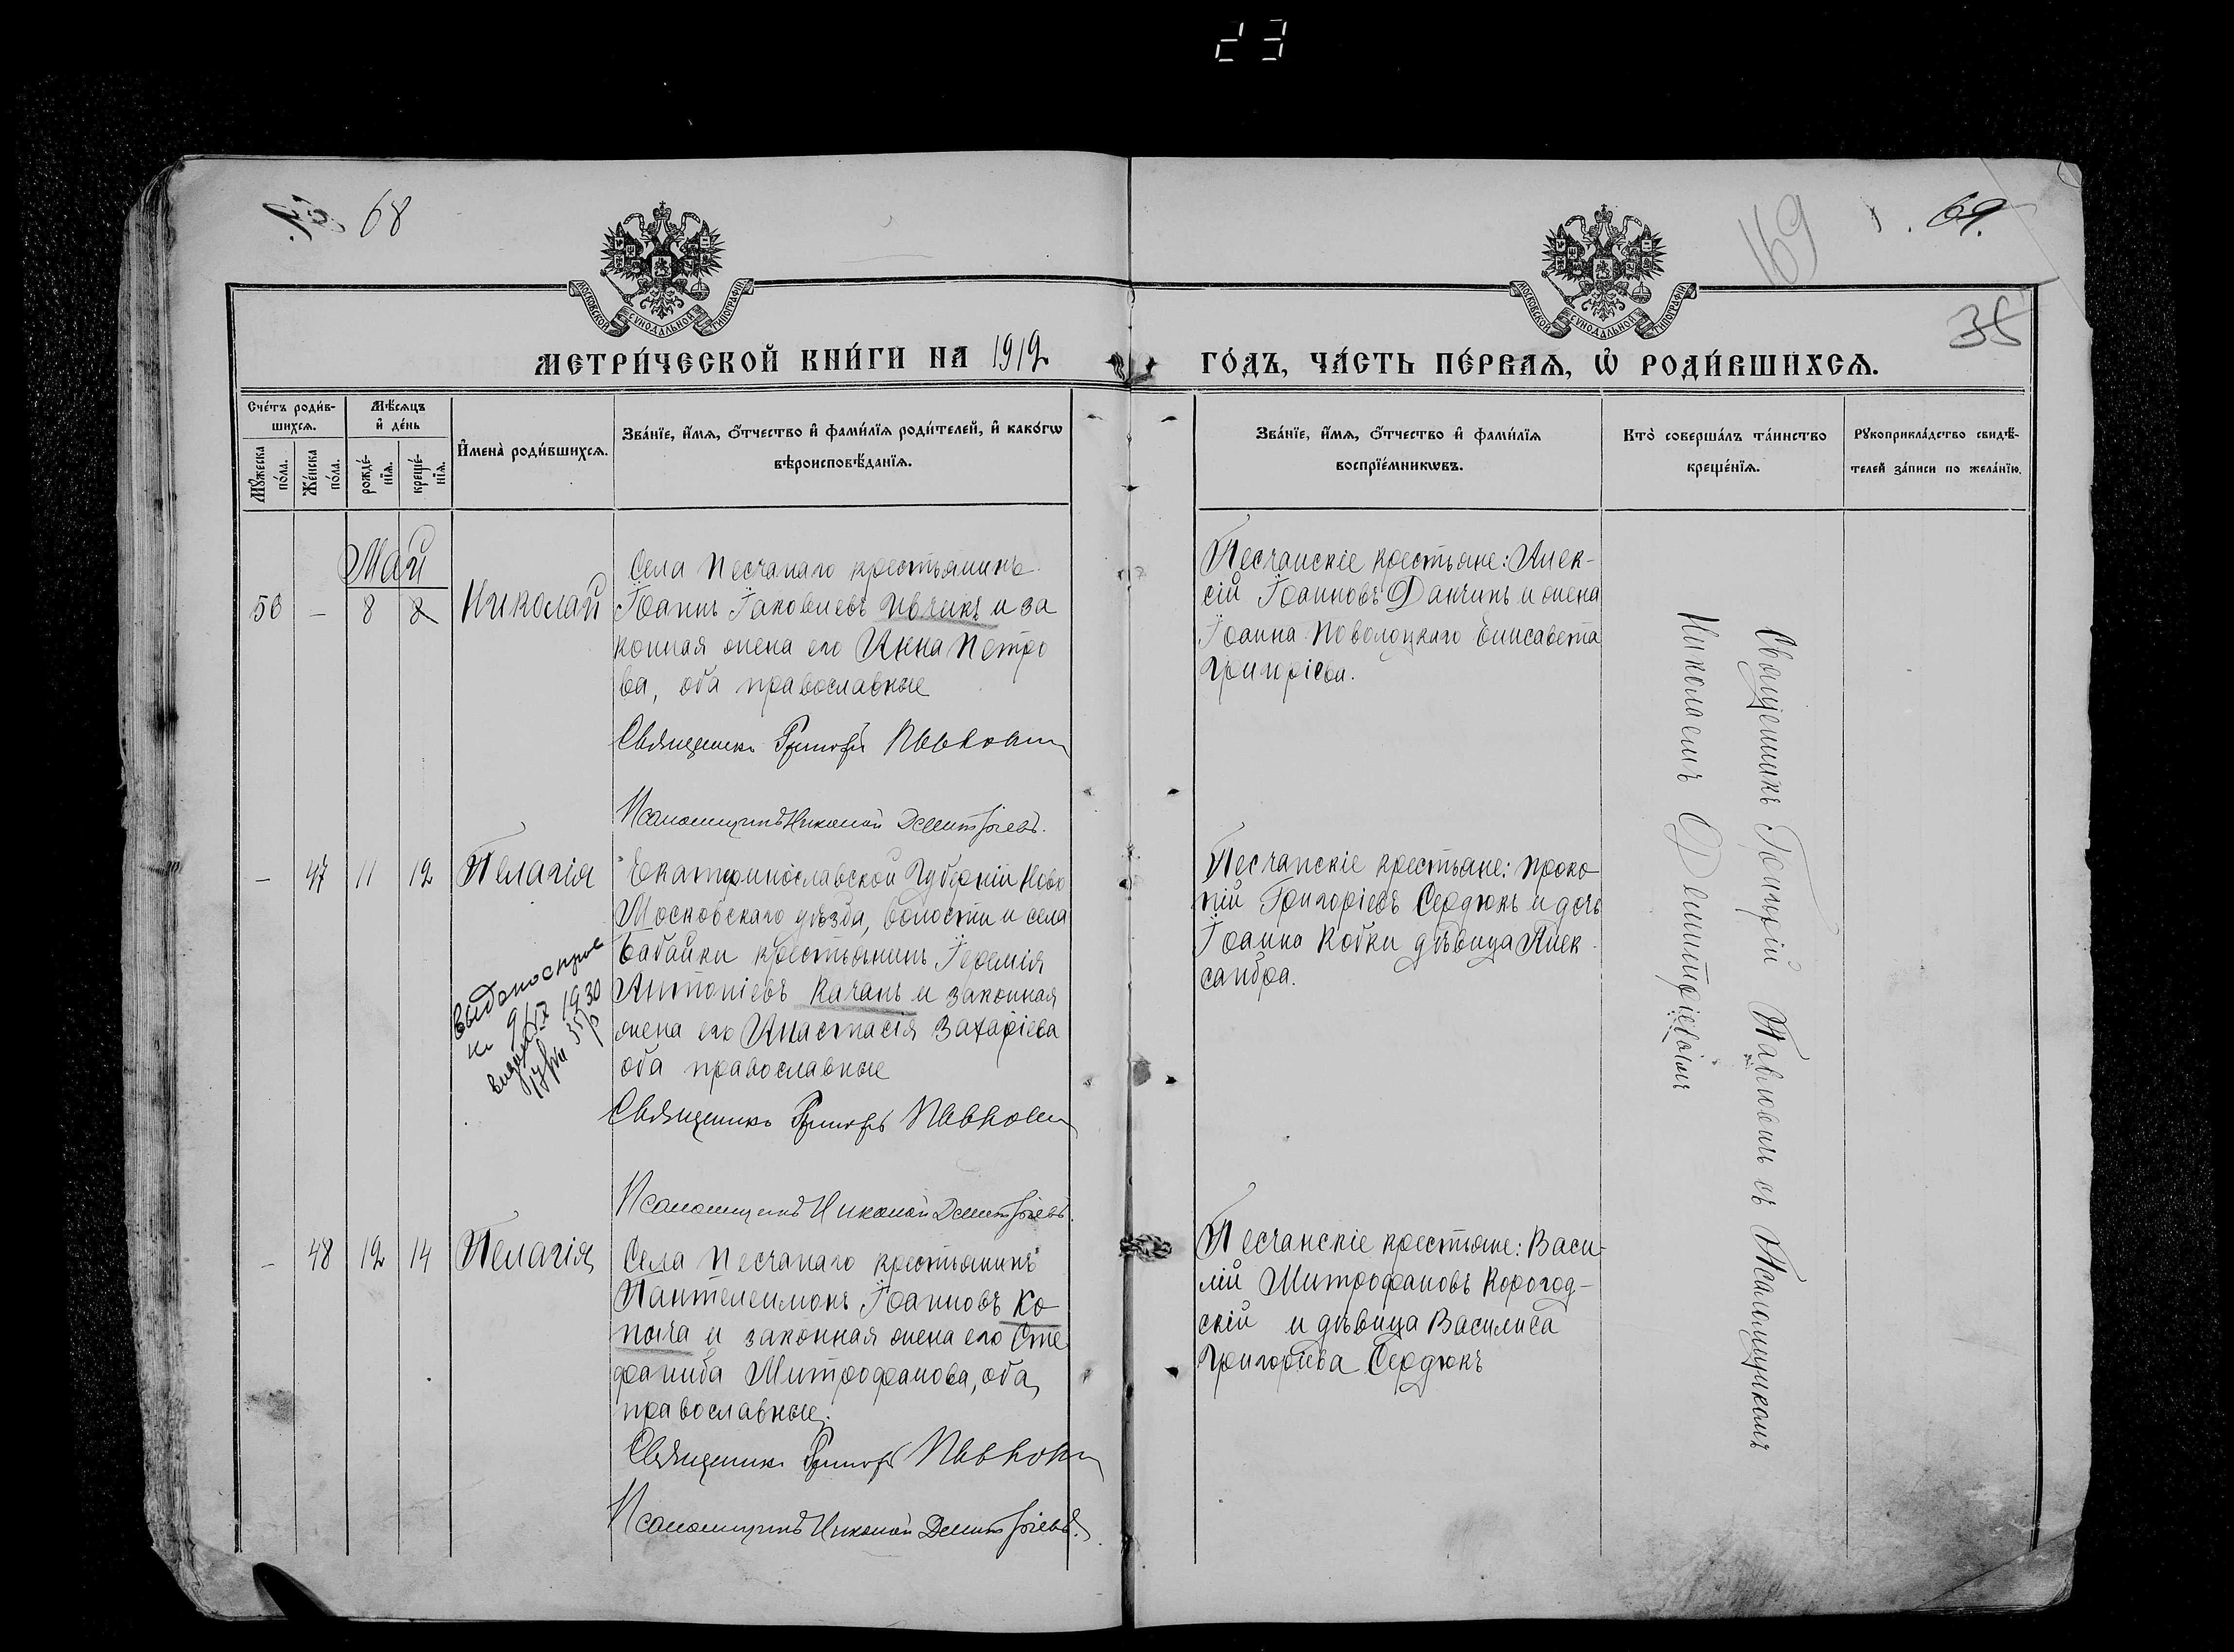 23
68
169
69.
35
МОСКОВСКОЙ СУНОДАЛЬНОЙ ТИПОГРАФІИ
МОСКОВСКОЙ СУНОДАЛЬНОЙ ТИПОГРАФІИ
МЕТРИ́ЧЕСКОЙ КНИ́ГИ НА 1912
ГО́ДЪ, ЧА́СТЬ ПЕ́РВАѦ, Ѽ РОДИ́ВШИХСѦ.
Сче́тъ роди́в-
шихсѧ.
Мꙋ́жеска
по́ла.
Же́нска
по́ла.
Мѣ́сѧцъ
и҆ де́нь
рожде́-
нїѧ.
креще́-
нїѧ.
И҆мена̀ роди́вшихсѧ.
Зва́нїе, и҆́мѧ, ѻ҆́тчество и҆ фами́лїѧ роди́телей, и҆ како́гѡ
вѣроисповѣ́данїѧ.
Зва́нїе, и҆́мѧ, ѻ҆́тчество и҆ фами́лїѧ
воспрїе́мникѡвъ.
Кто̀ соверша́лъ та́инство
креще́нїѧ.
Рꙋкоприкла́дство свидѣ́-
телей за́писи по жела́нїю.
Май
50 — 8 8 Николай
Села Песчанаго крестьянинъ
Іоаннъ Іаковлевъ Ивчикъ и за
конная жена его Анна Петро
ва, оба православные
Священникъ Григорій Павловъ
Псаломщикъ Николай Демитріевъ.
Песчанскіе крестьяне: Алек-
сій Іоанновъ Данчинъ и жена
Іоанна Поволоцкаго Елисавета
Григоріева.
— 47 11 12 Пелагія
Екатеринославской Губерніи Ново
Московскаго уѣзда, волости и села
Бабайки крестьянинъ Іеремія
Антоніевъ Качанъ и законная
жена его Анастасія Захаріева
оба православные
Священникъ Григорій Павловъ
Псаломщикъ Николай Демитріевъ.
9/IX 1930
Песчанскіе крестьяне: Проко
пій Григоріевъ Сердюкъ и дочь
Іоанна Кобки дѣвица Алек-
сандра.
— 48 12 14 Пелагія
Села Песчанаго крестьянинъ
Пантелеимонъ Іоанновъ Ко
пыча и законная жена его Сте
фанида Митрофанова, оба
православные.
Священникъ Григорій Павловъ
Псаломщикъ Николай Демитріевъ.
Песчанскіе крестьяне: Васи-
лій Митрофановъ Корогод-
скій и дѣвица Василиса
Григоріева Сердюкъ
Священникъ Григорій Павловъ съ Псаломщикомъ
Николаемъ Демитріевымъ